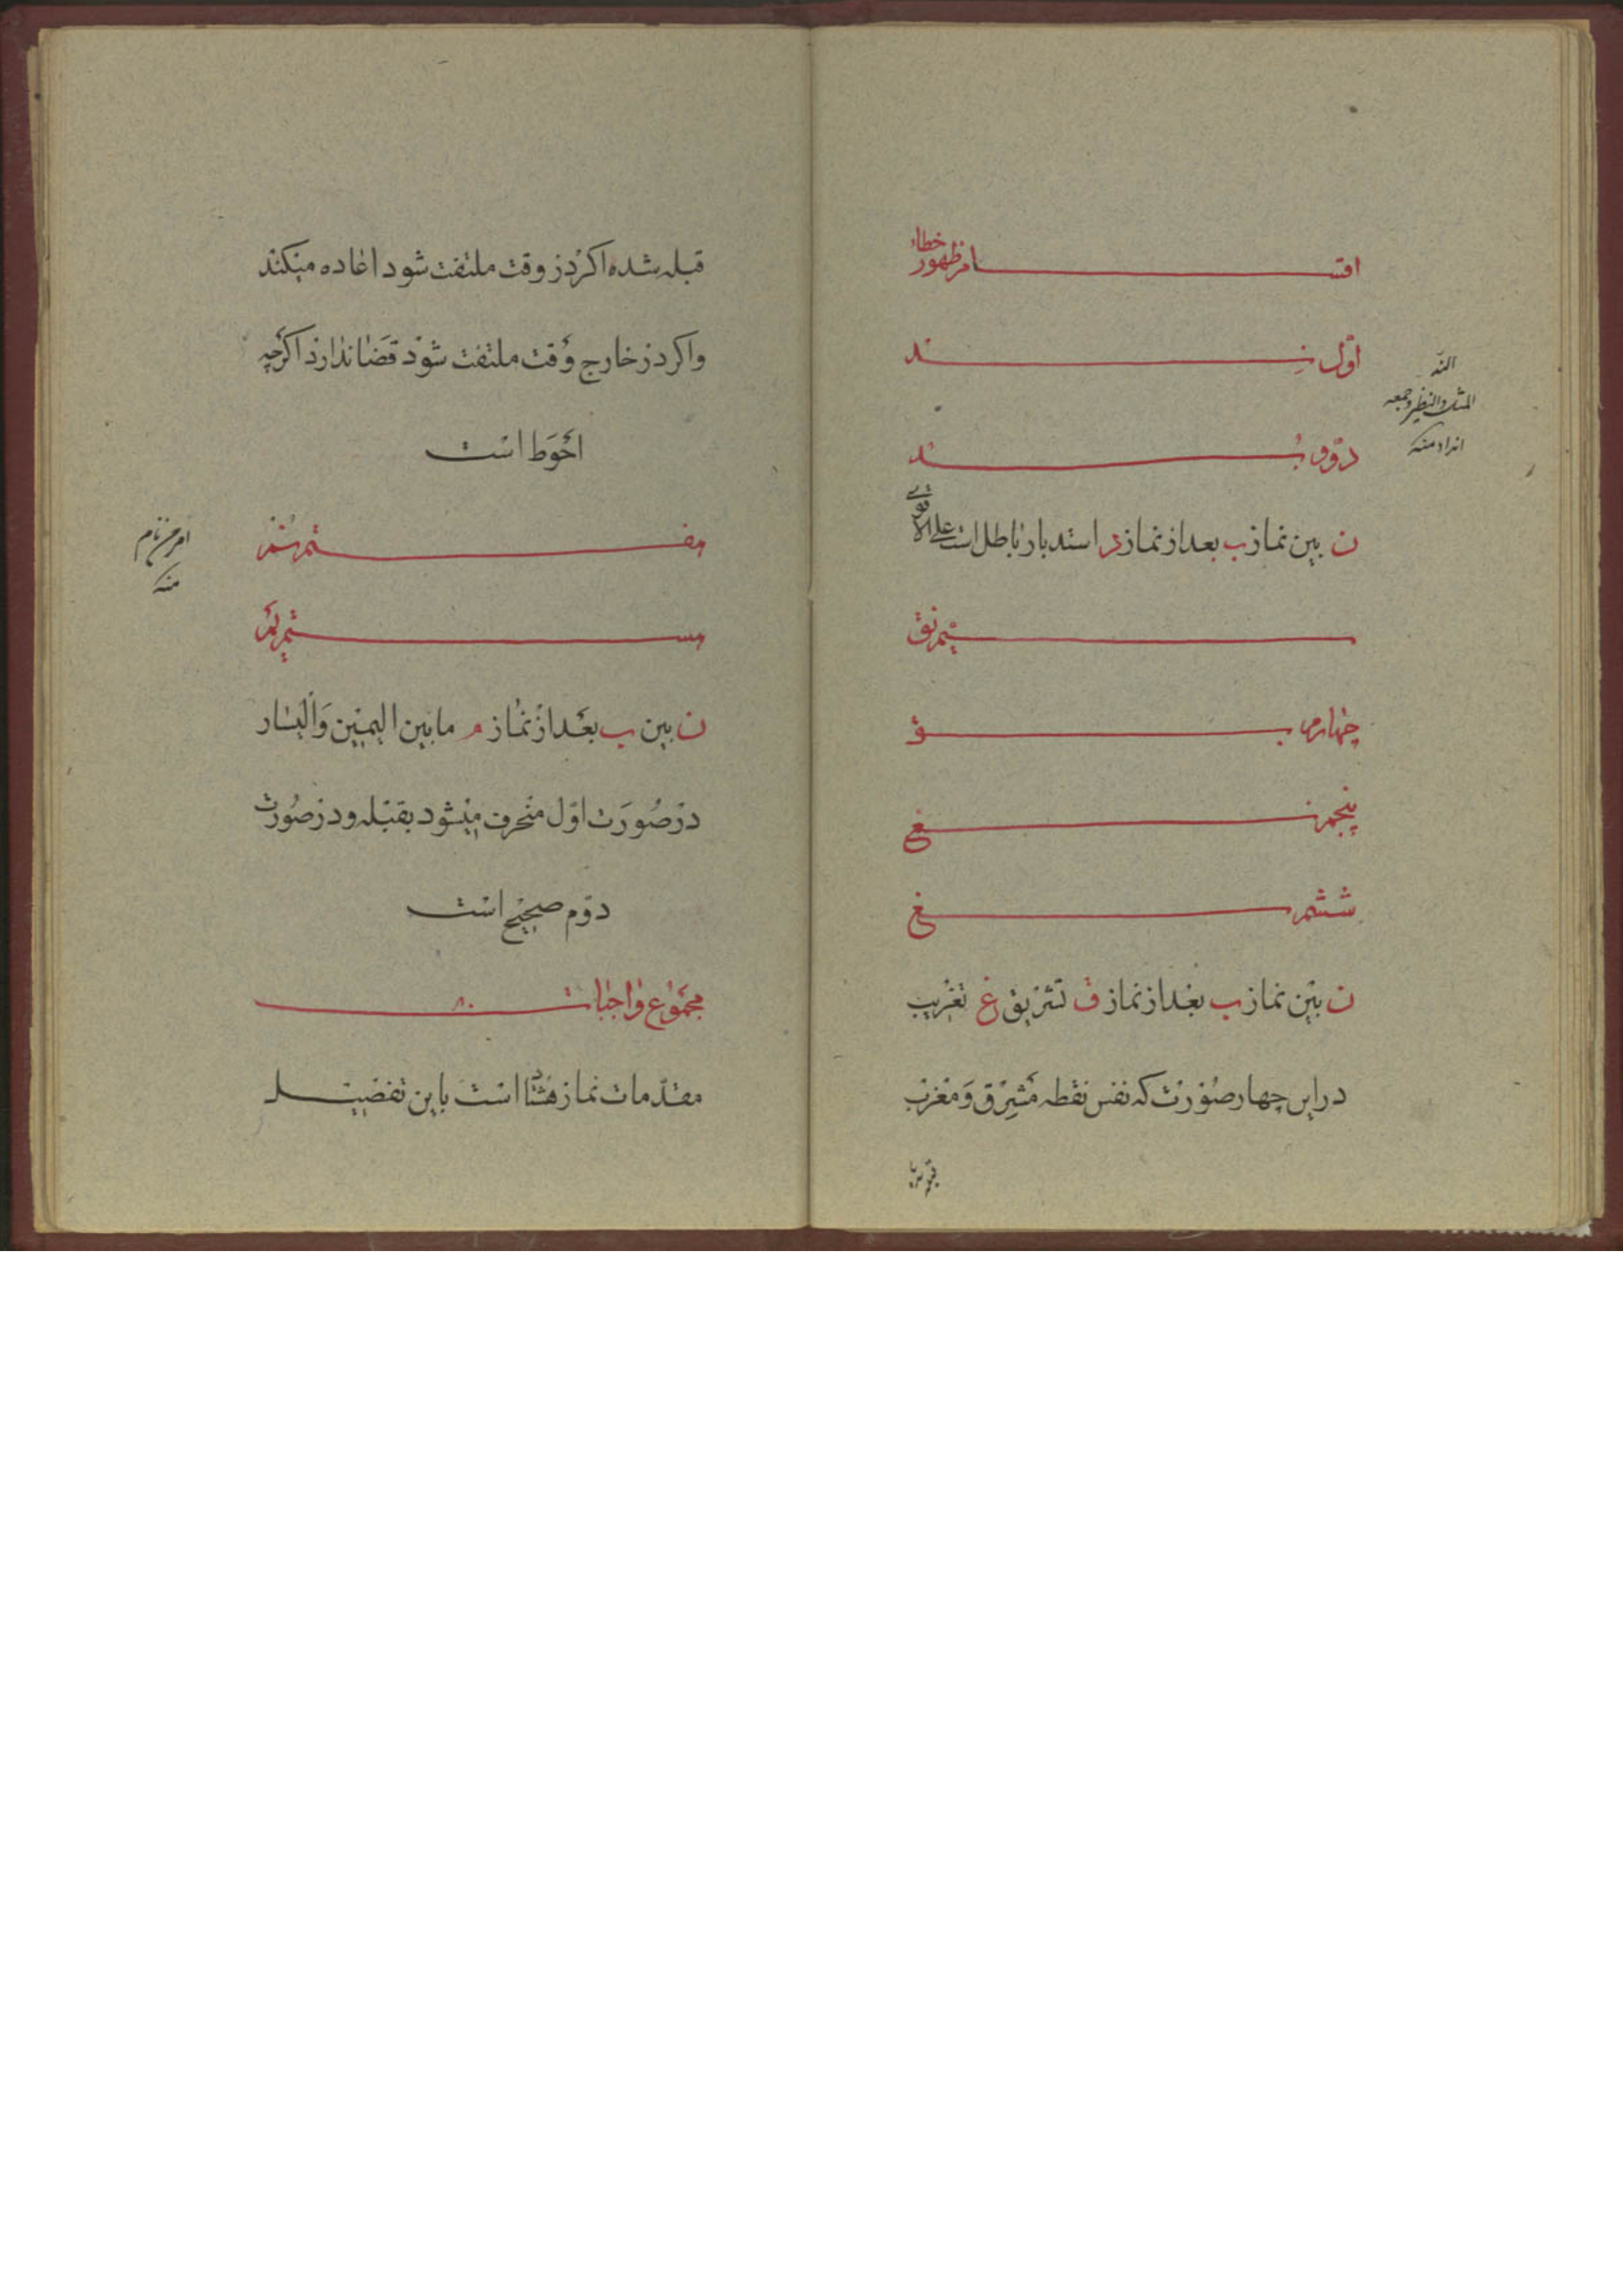 اقسام ظهور خطاء
اوّل نِد
دوّم بُد
ن بین نماز ب بعد از نماز د استدبار باطل است علی الاقوی
سیّم نق
چهارم بق
پنجم نغ
ششم بغ
ن بین نماز ب بعد از نماز ق تشریق غ تغریب
در این چهار صورت که نفس نقطه مشرق و مغرب
النّد
المثل والنظیر و جمعه
انداد منه
قبله شده اکر در وقت ملتفت شود اعاده میکند
و اکر در خارج وقت ملتفت شود قضا ندارد اکرچه
احوط است
هفتم نم
هشتم بم
منه
ن بین ب بعد از نماز م مابین الیمین والیسار
در صورت اوّل منحرف میشود بقبله و در صورت
دوّم صحیح است
مجموع واجبات ۸۰
مقدّمات نماز هشتاد است باین تفصیل